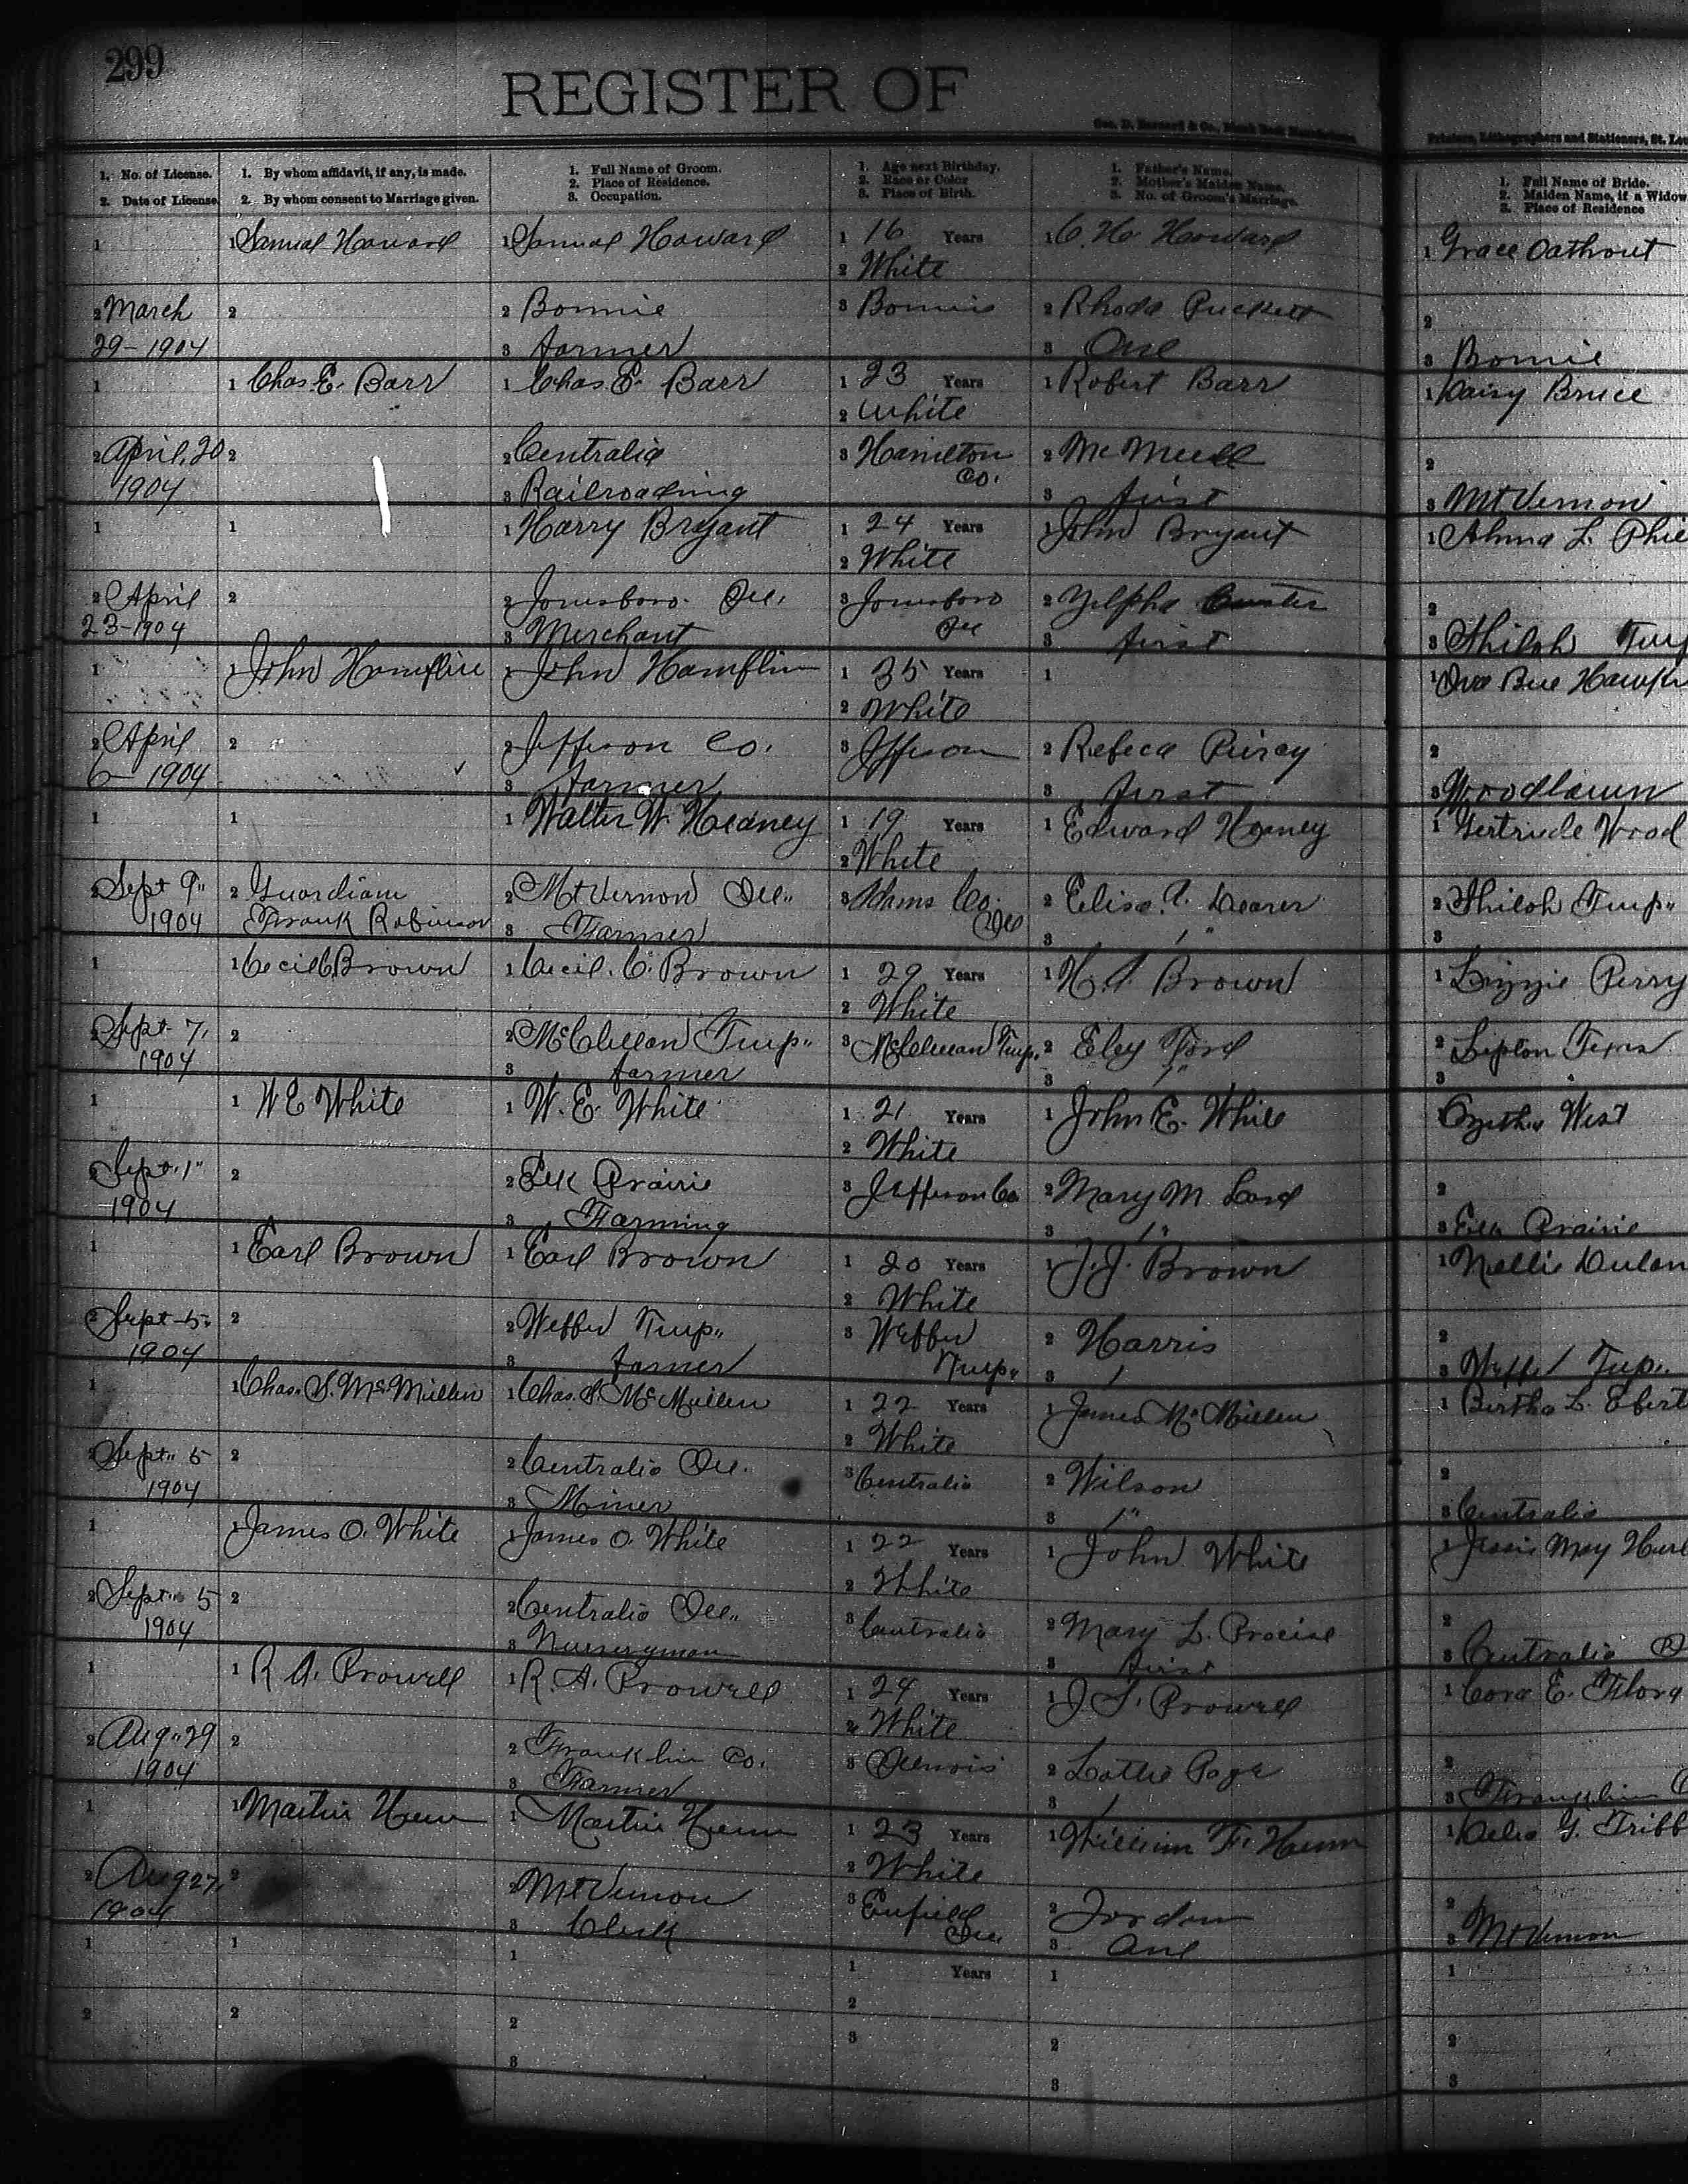 299
REGISTER OF
Geo. D. Barnard & Co., Blank Book Manufacturers,
Printers, Lithographers and Stationers, St. Lou
1. No. of License.
2. Date of License.
1. By whom affidavit, if any, is made.
2. By whom consent to Marriage given.
1. Full Name of Groom.
2. Place of Residence.
3. Occupation.
1. Age next Birthday.
2. Race or Color
3. Place of Birth.
1. Father's Name.
2. Mother's Maiden Name.
3. No. of Groom's Marriage.
1. Full Name of Bride.
2. Maiden Name, if a Widow
3. Place of Residence
1
2 March
29-1904
1 Samuel Howard
2
1 Samuel Howard
2 Bonnie
3 farmer
1 16 Years
2 White
3 Bonnie
1 C. H. Howard
2 Rhoda Puckett
3 One
1 Grace Oathout
2
3 Bonnie
1
2 April, 20
1904
1 Chas. E. Barr
2
1 Chas. E. Barr
2 Centralia
3 Railroading
1 23 Years
2 White
3 Hamilton
Co.
1 Robert Barr
2
3 first
1 Daisy Bruce
2
3 Mt Vernon
1
2 April
23-1904
1
2
1 Harry Bryant
2 Jonesboro Ill.
3 Merchant
1 24 Years
2 White
3 Jonesboro
Ill
1 John Bryant
2 Zelpha
3 first
1 L. Phil
2
3 Shiloh Twp
1
2 April
6-1904
1 John
2
1 John
2 Jefferson Co.
3 farmer
1 35 Years
2 White
3 Jefferson
1
2 Rebeca Piercy
3 first
1
2
3 Woodlawn
1
2 Sept 9"
1904
1
2 Guardian
Frank Robinson
1 Walter W.
2 Mt Vernon Ill..
3 Farmer
1 19 Years
2 White
3 Adams Co.
Ill
1 Edward
2 Eliza A.
3 1"
1 Gertrude Wood
2 Shiloh Twp"
3
1
2 Sept. 7,
1904
1 Cecil C Brown
2
1 Cecil. C. Brown
2 McClellan Twp"
3 farmer
1 29 Years
2 White
3 McClellan Twp.
1 H. S. Brown
2 Eley Ford
3 1"
1 Lizzie Perry
2
3
1
2 Sept. 1"
1904
1 W E White
2
1 W. E. White
2 Elk Prairie
3 Farming
1 21 Years
2 White
3 Jefferson Co.
1 John E. White
2 Mary M. Lord
3 1"
1 West
2
3 Elk Prairie
1
2 Sept 5.
1904
1 Earl Brown
2
1 Earl Brown
2 Webber Twp"
3 farmer
1 20 Years
2 White
3 Webber
Twp"
1 J. J. Brown
2 Harris
3 1
1 Nellie Dulan
2
3 Webber Twp..
1
2 Sept" 5
1904
1 Chas. S. McMillen
2
1 Chas. S. McMullen
2 Centralia Ill.
3 Miner
1 22 Years
2 White
3 Centralia
1 James McMillen
2 Wilson
3 1"
1 Bertha L. Ebert
2
3 Centralia
1
2 Sept" 5
1904
1 James O. White
2
1 James O. White
2 Centralia Ill..
3 Nurseryman
1 22 Years
2 White
3 Centralia
1 John White
2 Mary L. Procise
3 first
1 Jessie May
2
3 Centralia
1
2 Aug. 29
1904
1 R. A. Prowell
2
1 R. A. Prowell
2 Franklin Co.
3 Farmer
1 24 Years
2 White
3 Illinois
1 J. T. Prowell
2 Lottie Page
3 1
1 Cora E. Flora
2
3 Franklin
1
2 Aug 27,
1904
1 Martin
2
1 Martin
2 Mt Vernon
3 Clerk
1 23 Years
2 White
3 Enfield
Ill
1 William F.
2 Jordan
3 One
1 Delia G. Tribb
2
3 Mt Vernon
1
2
1
2
1
2
3
1 Years
2
3
1
2
3
1
2
3